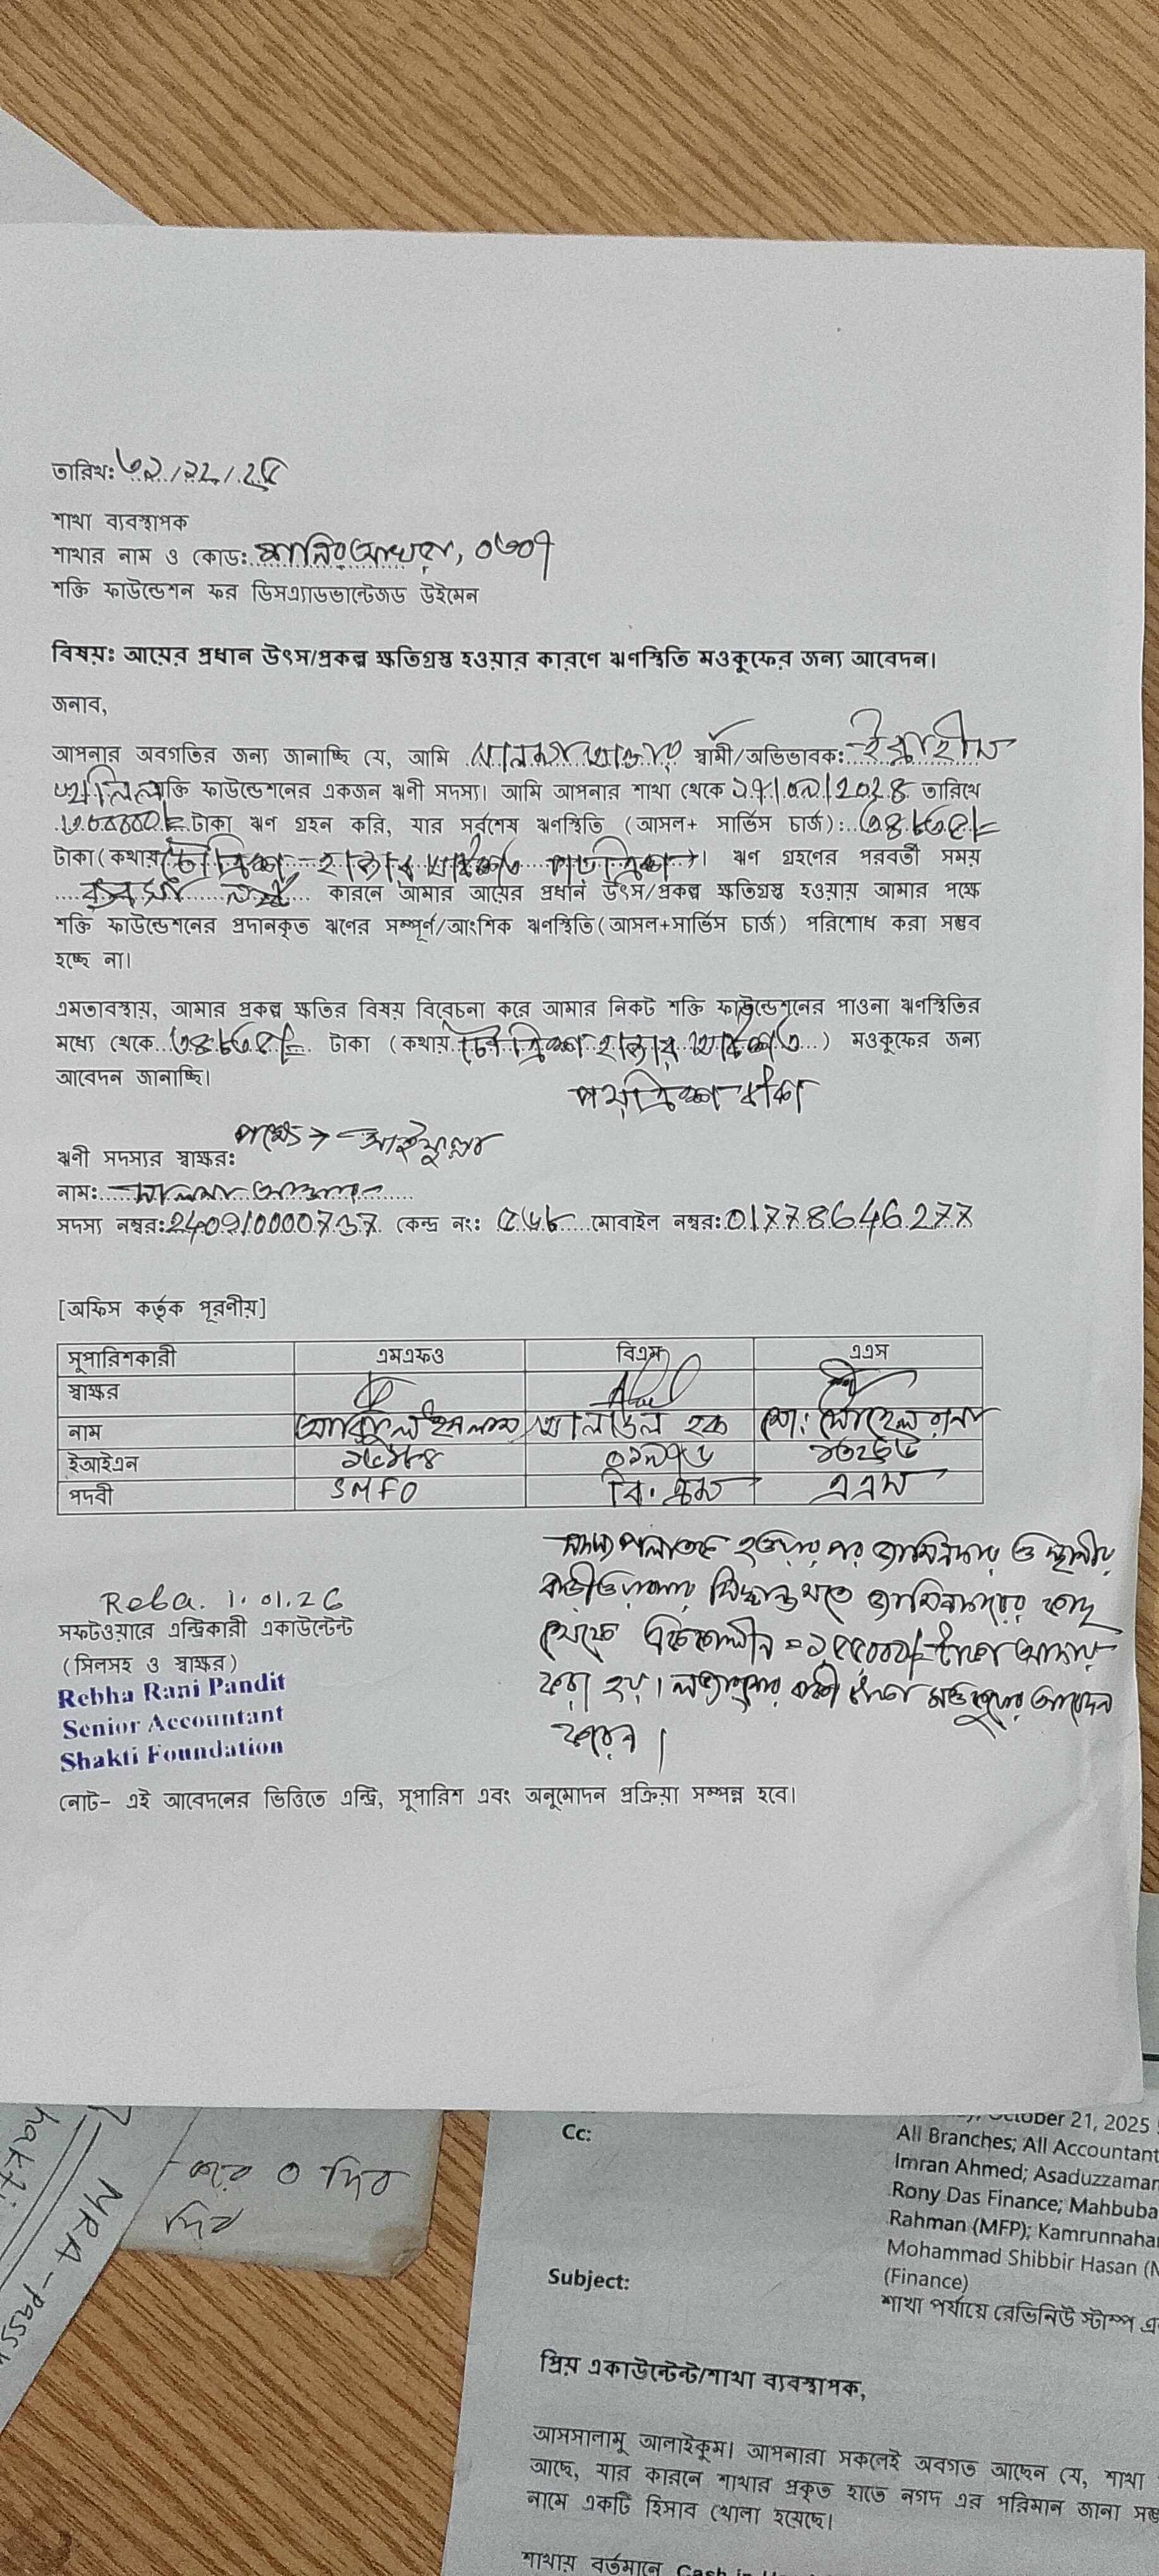 তারিখঃ ৩১/১২/২৫
শাখা ব্যবস্থাপক
শাখার নাম ও কোডঃ শনিরআখড়া, ০৬০৭
শক্তি ফাউন্ডেশন ফর ডিসএ্যাডভান্টেজড উইমেন
বিষয়ঃ আয়ের প্রধান উৎস/প্রকল্প ক্ষতিগ্রস্ত হওয়ার কারণে ঋণস্থিতি মওকুফের জন্য আবেদন।
জনাব,
আপনার অবগতির জন্য জানাচ্ছি যে, আমি সালমা আক্তার স্বামী/অভিভাবকঃ ইব্রাহীম
খলিল শক্তি ফাউন্ডেশনের একজন ঋণী সদস্য। আমি আপনার শাখা থেকে তারিখে
টাকা ঋণ গ্রহন করি, যার সর্বশেষ ঋণস্থিতি (আসল+ সার্ভিস চার্জ): ৩৪৮৩৫/=
টাকা(কথায় চৌত্রিশ হাজার আটশত পয়ত্রিশ)। ঋণ গ্রহণের পরবর্তী সময়
ব্যবসা নষ্ট কারনে আমার আয়ের প্রধান উৎস/প্রকল্প ক্ষতিগ্রস্ত হওয়ায় আমার পক্ষে
শক্তি ফাউন্ডেশনের প্রদানকৃত ঋণের সম্পূর্ণ/আংশিক ঋণস্থিতি(আসল+সার্ভিস চার্জ) পরিশোধ করা সম্ভব
হচ্ছে না।
এমতাবস্থায়, আমার প্রকল্প ক্ষতির বিষয় বিবেচনা করে আমার নিকট শক্তি ফাউন্ডেশনের পাওনা ঋণস্থিতির
মধ্যে থেকে ৩৪৮৩৫/= টাকা (কথায় চৌত্রিশ হাজার আটশত ) মওকুফের জন্য
পয়ত্রিশ টাকা
আবেদন জানাচ্ছি।
পক্ষে→ সাইফুল্লাহ
ঋণী সদস্যর স্বাক্ষরঃ
নামঃ সালমা আক্তার
সদস্য নম্বরঃ 240910000737 কেন্দ্র নংঃ ৫৬৮ মোবাইল নম্বরঃ 01778646277
[অফিস কর্তৃক পূরণীয়]
সুপারিশকারী এমএফও বিএম এএস
স্বাক্ষর
নাম আরিফুল ইসলাম হক মো: সোহেল রানা
ইআইএন
পদবী SMFO বি. এম এএস
সদস্য পলাতক হওয়ার পর জামিনদার ও স্থানীয়
বাড়ীওয়ালার সিদ্ধান্ত মতে জামিনদারের কাছ
থেকে এককালীন = টাকা আদায়
করা হয়। বাকী টাকা মওকুফের আবেদন
করেন।
Reba. 1.01.26
সফটওয়ারে এন্ট্রিকারী একাউন্টেন্ট
(সিলসহ ও স্বাক্ষর)
Rebha Rani Pandit
Senior Accountant
Shakti Foundation
নোট- এই আবেদনের ভিত্তিতে এন্ট্রি, সুপারিশ এবং অনুমোদন প্রক্রিয়া সম্পন্ন হবে।
October 21, 2025
Cc:
All Branches; All Accountant
Imran Ahmed; Asaduzzaman
Rony Das Finance; Mahbuba
Rahman (MFP); Kamrunnahar
Mohammad Shibbir Hasan (
(Finance)
Subject:
শাখা পর্যায়ে রেভিনিউ স্টাম্প
প্রিয় একাউন্টেন্ট/শাখা ব্যবস্থাপক,
আসসালামু আলাইকুম। আপনারা সকলেই অবগত আছেন যে, শাখা
আছে, যার কারনে শাখার প্রকৃত হাতে নগদ এর পরিমান জানা
নামে একটি হিসাব খোলা হয়েছে।
শাখায় বর্তমানে Cash in